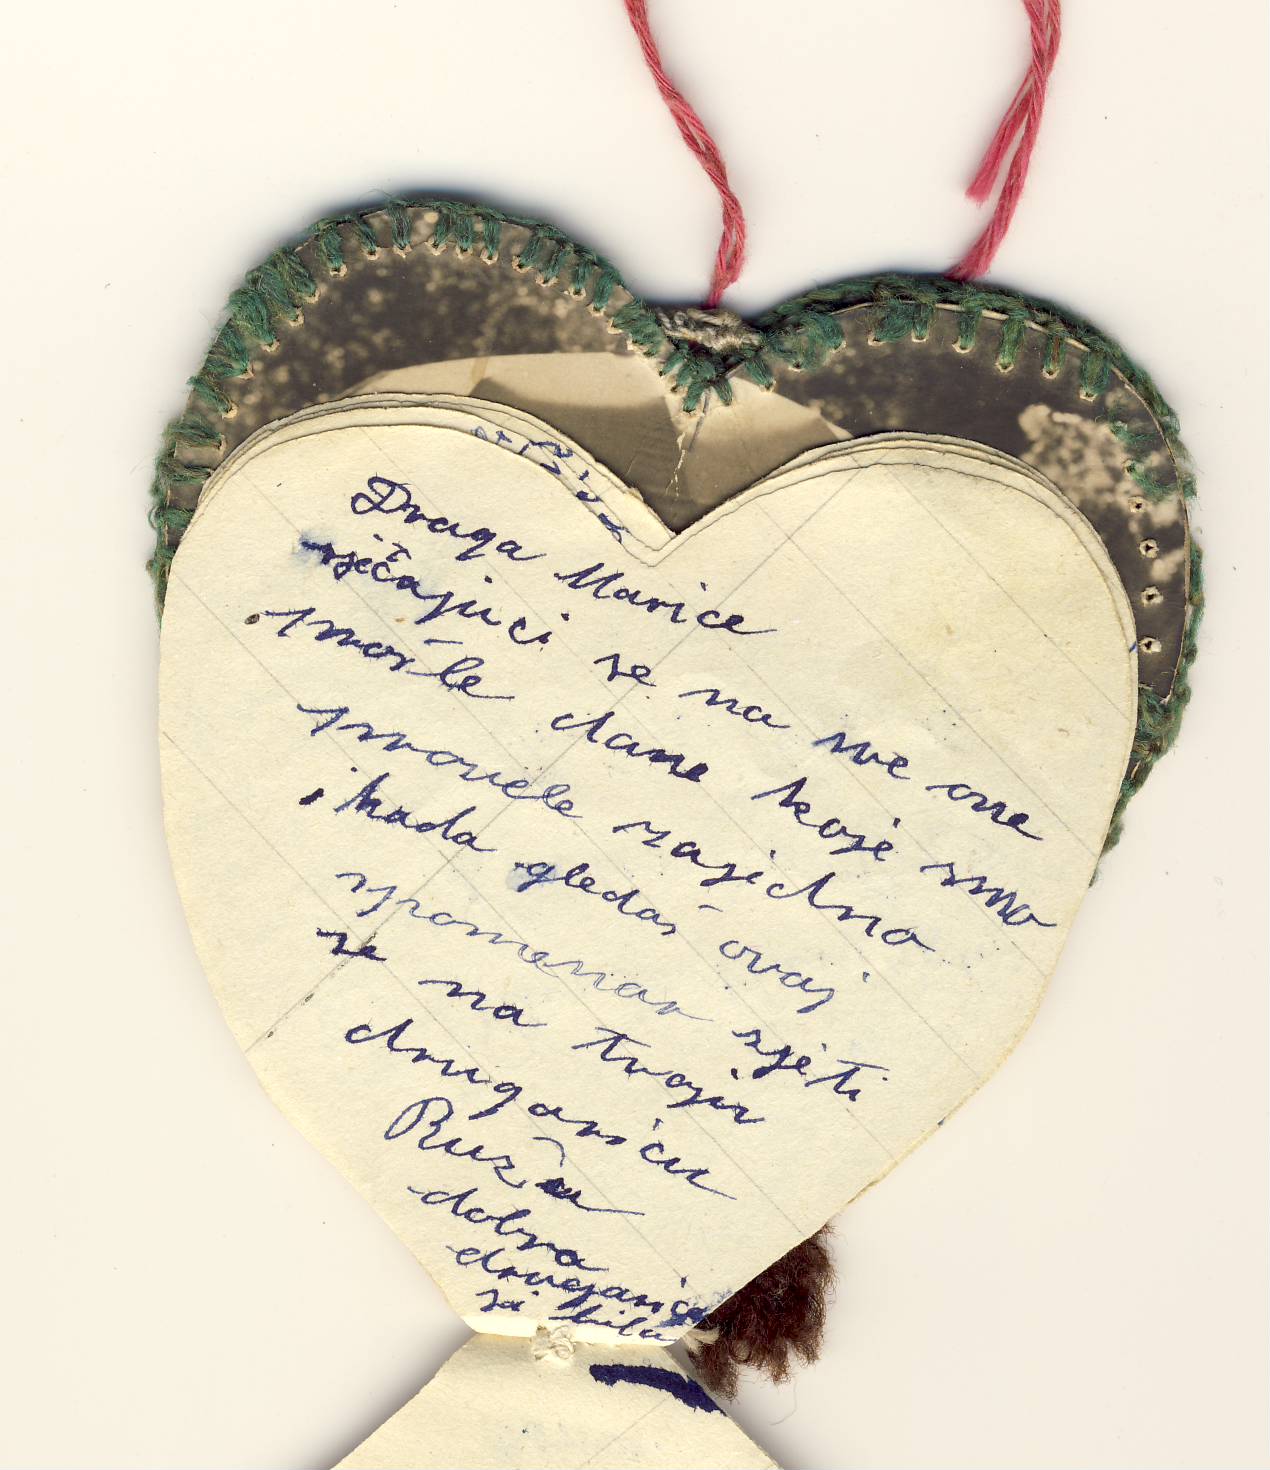 Draga Marice
sječajuci se na sve one
prošle dane koje smo
provele zajedno
i kada gledaš ovaj
spomenar sjeti
se na tvoju
drugaricu
Ružu
dobra
drugarica
si bila